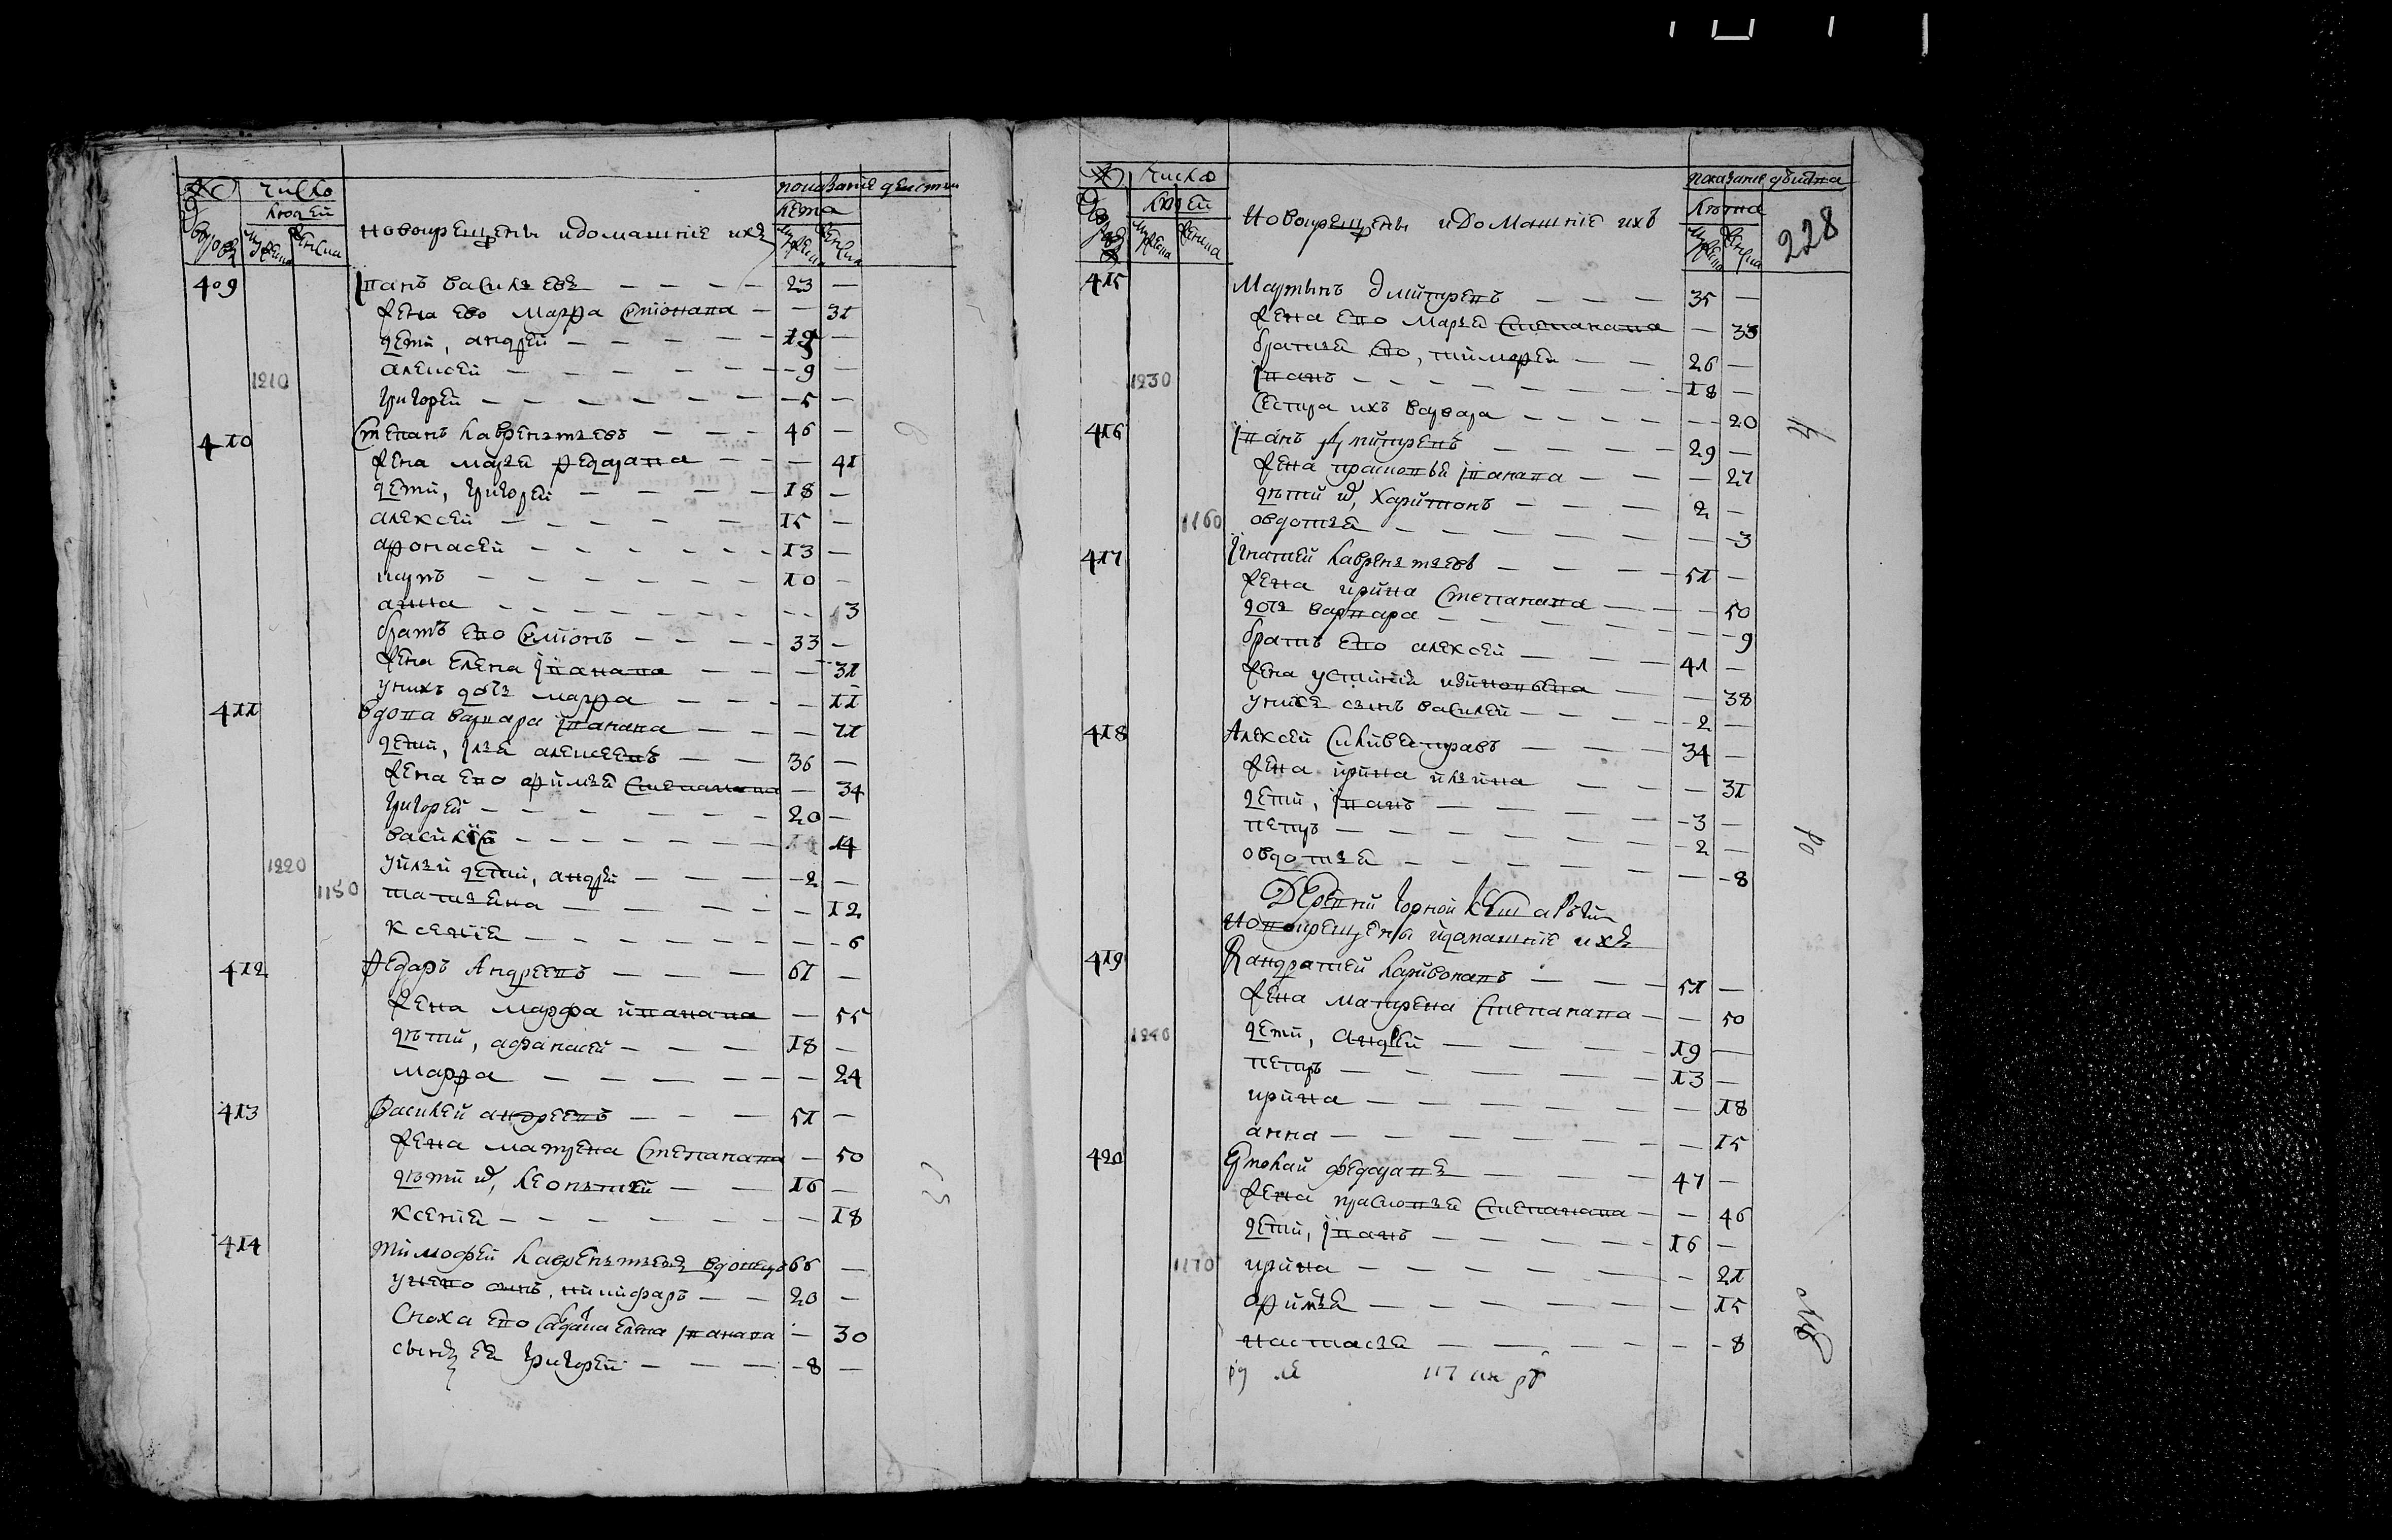 № число показание действи
людей лета
дворовъ мужеска женска новокрещены и домашние ихъ мужеска женска
409 Іванъ Васильевъ — — — — 23 —
жена ево Марфа Симіонава — — 31
дети, андрей — — — — — 19 —
1210 алексей — — — — — — 9 —
григорей — — — — — — 5 —
410 Степанъ Лаврентьевъ — — — 46 —
жена марья федарава — — — 41
дети, григорей — — — — 18 —
алексей — — — — — 15 —
афонасей — — — — — 13 —
наумъ — — — — — — 10 —
анна — — — — — — — 13
братъ ево Симіонъ — — — — 33 —
жена елена Іванава — — — — 31
унихъ дочь марфа — — — — 11
411 вдова варвара Іванава — — — 71
дети, Илья алексеевъ — — 36 —
жена ево афимья Степанава — 34
григорей — — — — — — 20 —
василіса — — — — — — 14
1220 уильи дети, андрей — — — — 2 —
1150 татьяна — — — — — — 12
ксения — — — — — — — 6
412 Федаръ Андреевъ — — — — 61 —
жена марфа иванава — 55
дѣти, афанасей — — — 18 —
марфа — — — — — — 24
413 Василей андреевъ — — — 51 —
жена матрена Степанава — 50
дѣти ихъ, Леонътей — — 16 —
ксения — — — — — — — 18
414 Тимофей Лаврентьевъ вдовецъ 66 —
унево сынъ, никифаръ — — 20 —
Сноха ево салдатка елена Іванава — 30
сынъ ея григорей — — — — 8 —
№ число показание действа
людей лѣта
дворовъ мужеска женска новокрещены и домашние ихъ мужеска женска 228
415 Мартынъ Дмитревъ — — — 35 —
жена ево марья Степанава — 33
братья ево, тимофей — — 26 —
1230 Іванъ — — — — — — — 18 —
Сестра ихъ варвара — — — — — 20
416 Іванъ Дмитревъ — — — — 29 —
жена прасковья Іванава — — — 27
дѣти ихъ, Харитонъ — — — 2 —
1160 овдотья — — — — — — — 3
417 Игнатей Лаврентьевъ — — — — 51 —
жена ирина Степанава — — — 50
дочь варвара — — — — — — — 9
братъ ево алексей — — — — 41 —
жена устиния — — 38
унихъ сынъ василей — — — — 2 —
418 Алексей Силивестравъ — — — 34 —
жена ирина ильина — — — 31
дети, Іванъ — — — — — 3 —
петръ — — — — — — 2 —
овдотья — — — — — — — 8
Деревни горной
новокрещены и домашние ихъ
419 Кандратей Ларивонавъ — — — 51 —
жена матрена Степанава — — 50
1240 дети, Андрей — — — — 19 —
петръ — — — — — — 13 —
ирина — — — — — — — 18
анна — — — — — — — 15
420 Ермолай федаравъ — — — — 47 —
жена прасковья Степанава — — 46
дети, Іванъ — — — — — 16 —
1170 ирина — — — — — — — 21
афимья — — — — — — — 15
настасья — — — — — — 8